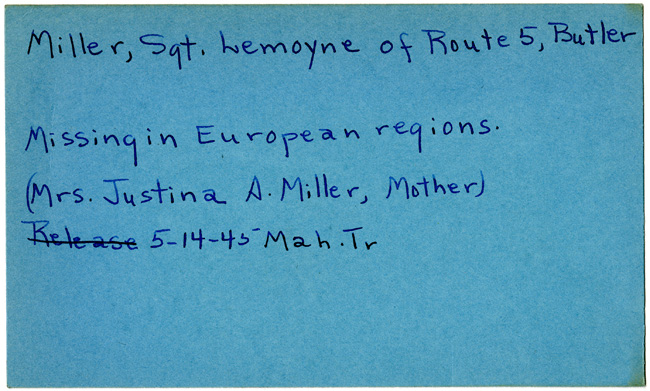 Miller, Sgt. Lemoyne of Route 5, Butler
Missing in European regions.
(Mrs. Justina A. Miller, Mother)
Release 5-14-45 Mah. Tr